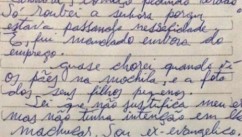 pedindo perdão
Só roubei a senhora porque
estava passando nessecidade
fui mandado embora do
emprego.
quase chorei quando
os pães na mochila, e a foto
dos seus filhos pequenos.
Sei que não justifica meu
mas não tinha intenção em
machucar. Sou ex-evangelico